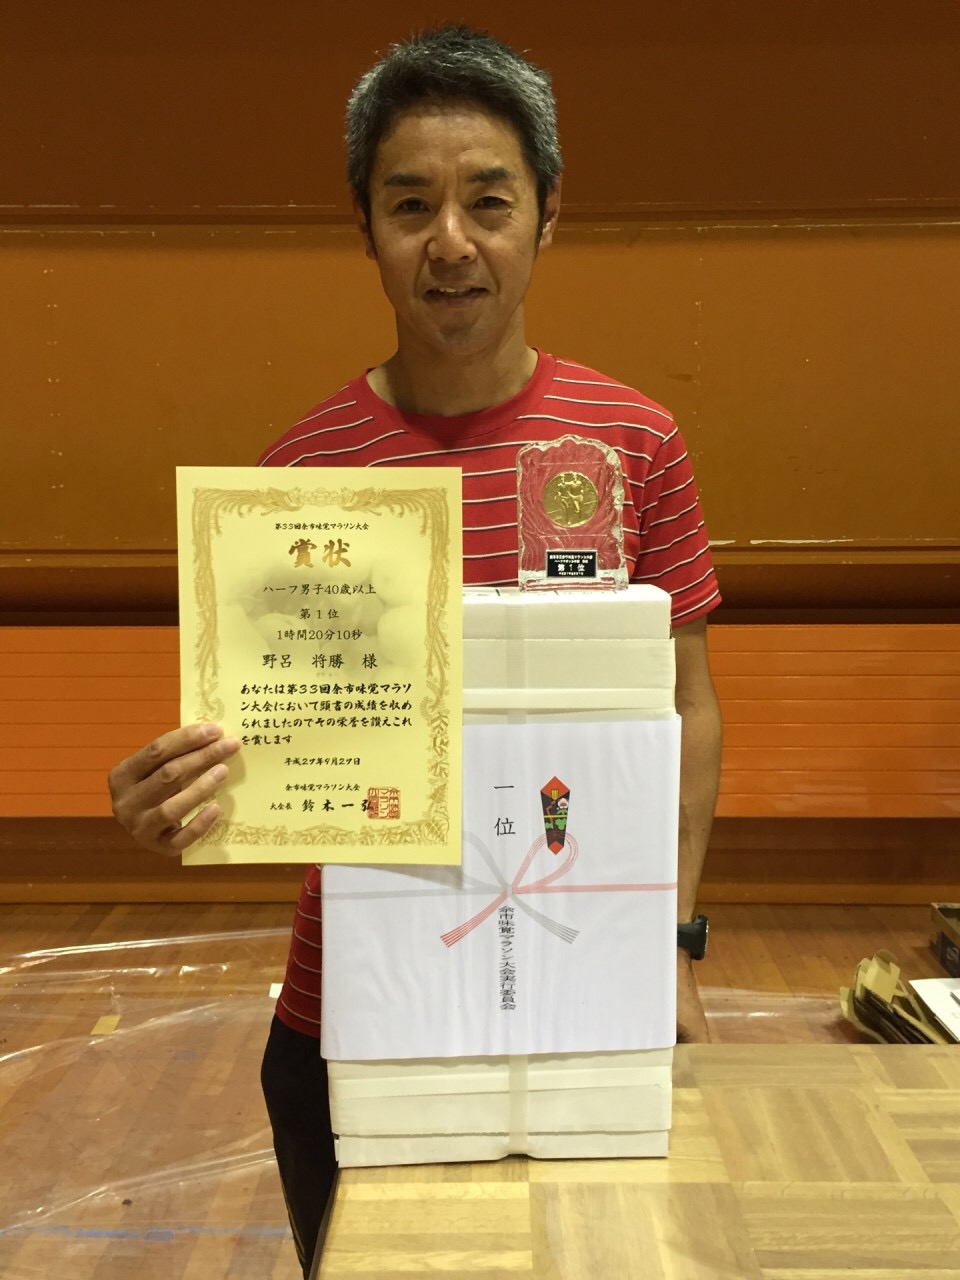 第33回余市味覚マラソン大会
賞状
ハーフ男子40歳以上
第1位
1時間20分10秒
野呂 将勝 様
あなたは第33回余市味覚マラソ
ン大会において頭書の成績を収め
られましたのでその栄誉を讃えこれ
を賞します
平成27年9月27日
余市味覚マラソン大会
大会長 鈴木一弘
第1位
一位
余市味覚マラソン大会実行委員会